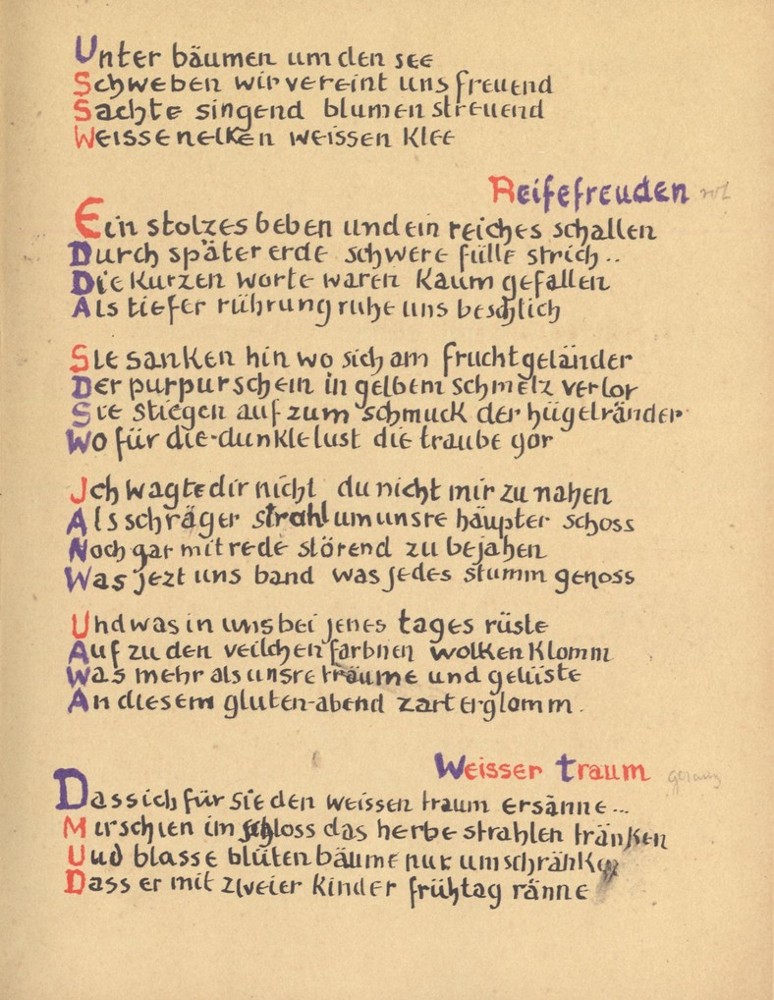 Unter bäumen um den see
Schweben wir vereint uns freuend
Sachte singend blumen streuend
Weisse nelken weissen Klee
Reifefreuden rot
Ein stolzes beben und ein reiches schallen
Durch später erde schwere fülle strich..
Die Kurzen worte waren Kaum gefallen
Als tiefer rührung ruhe uns beschlich
Sie sanken hin wo sich am fruchtgeländer
Der purpurschein in gelbem schmelz verlor
Sie stiegen auf zum schmuck der hügelränder
Wo für die dunkle lust die traube gor
Ich wagte dir nicht du nicht mir zu nahen
Als schräger strahl um unsre häupter schoss
Noch gar mit rede störend zu bejahen
Was jezt uns band was jedes stumm genoss
Und was in uns bei jenes tages rüste
Auf zu den veilchenfarbnen wolken Klomm
Was mehr als unsre träume und gelüste
An diesem gluten-abend zart erglomm.
Weisser traum
Dass ich für sie den weissen traum ersänne...
Mir schien im schloss das herbe strahlen tränken
Und blasse blütenbäume nur umschränken
Dass er mit zweier Kinder frühtag ränne